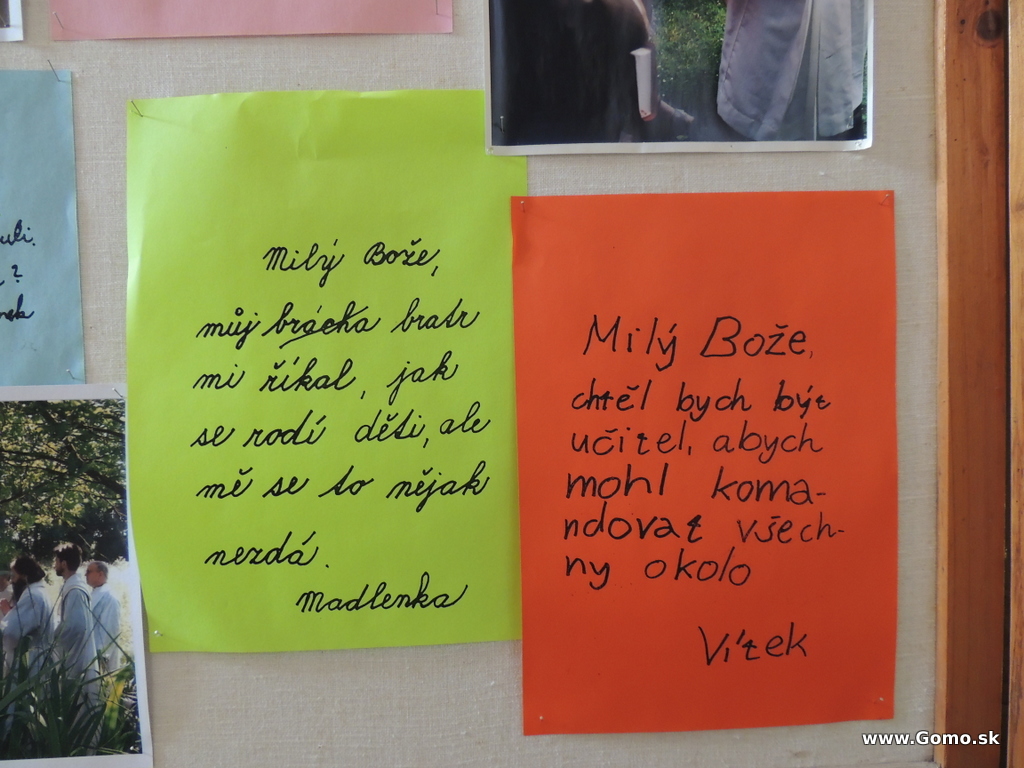 Milý Bože,
můj brácha bratr
mi říkal, jak
se rodí děti, ale
mě se to nějak
nezdá.
Madlenka
Milý Bože,
chtěl bych být
učitel, abych
mohl koma-
ndovat všech-
ny okolo
Vítek
www.Gomo.sk